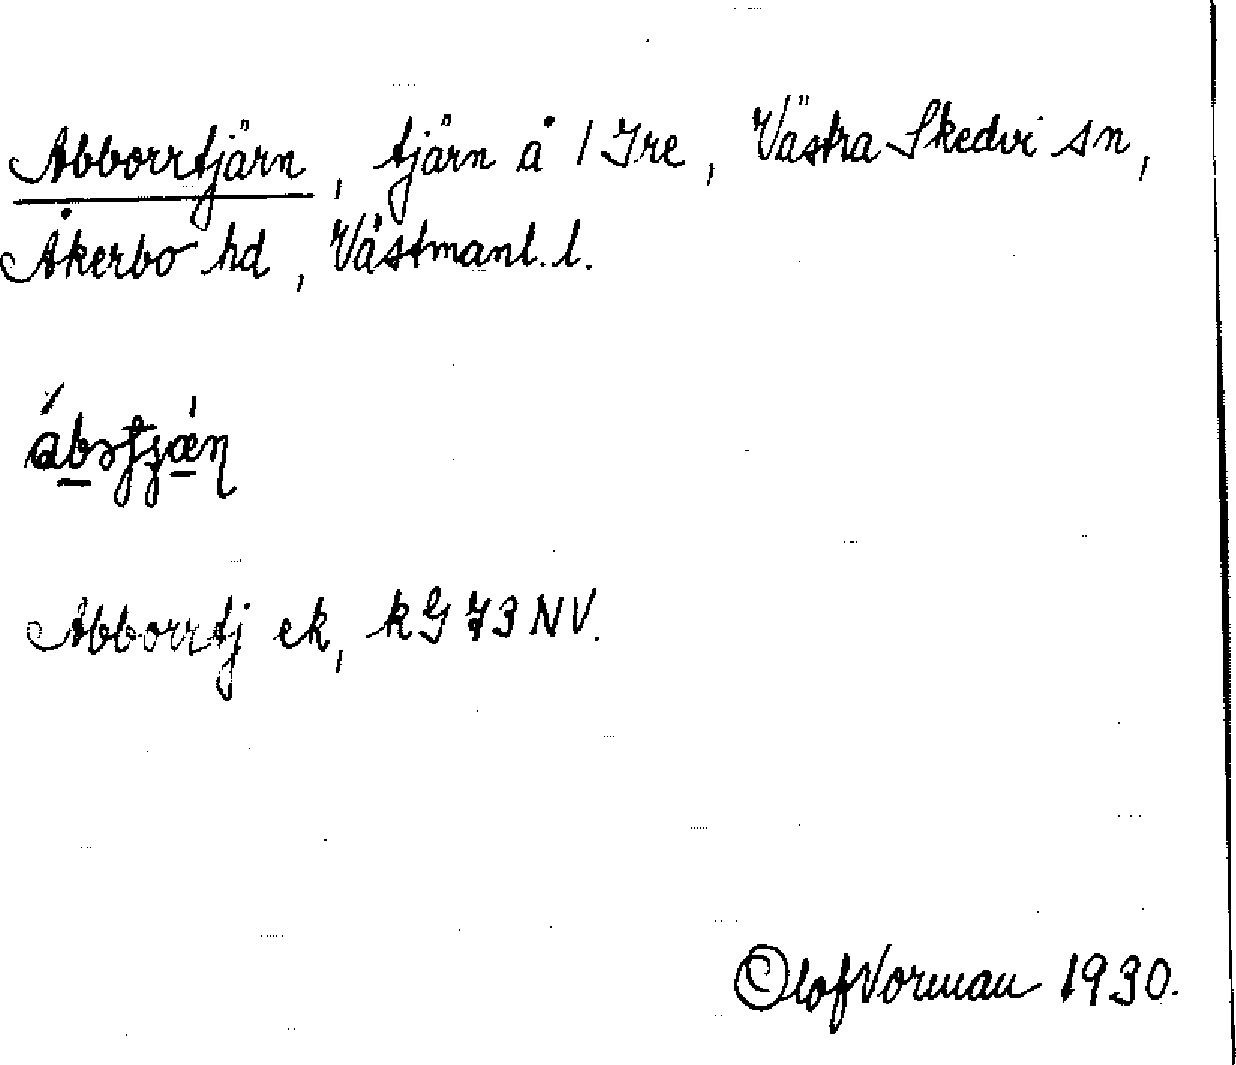 Abborrtjärn, tjärn å 1 Ire, Västra Skedvi sn,
Åkerbo hd, Västmanl. l.
Abborrtj ek, kG 73 NV.
Olof Vorman 1930.